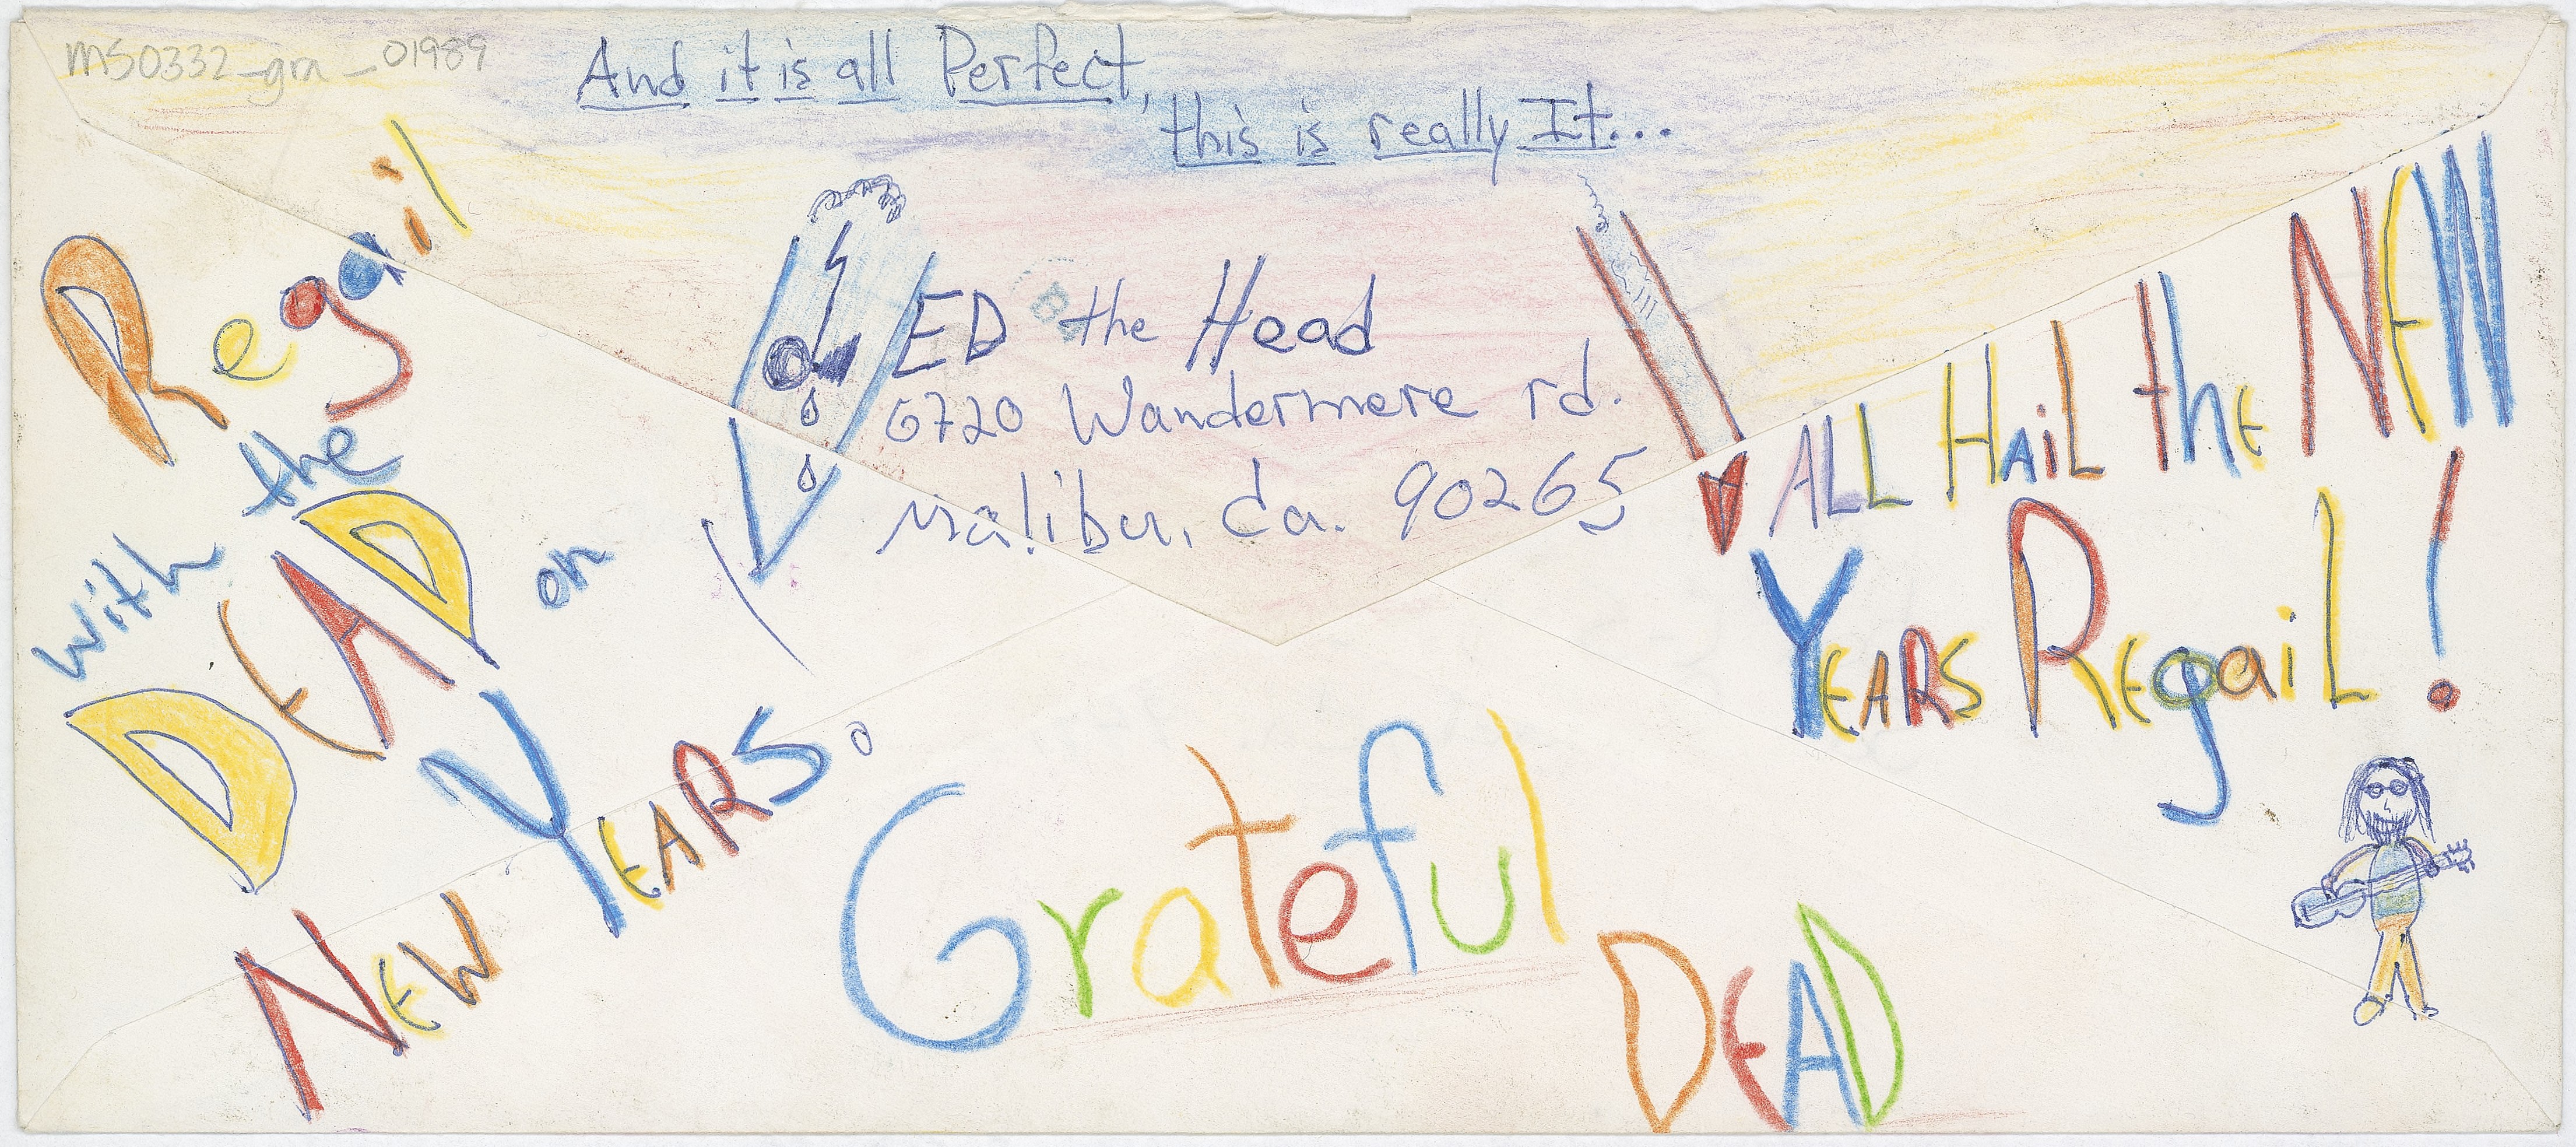 MS0332_gra_01989
And it is all Perfect,
this is really It...
ED the Head
6720 Wandermere rd.
Malibu, Ca. 90265
Regail
with the
DEAD on
NEW YEARS.
ALL HAiL the NEW
YEARS REgaiL!
Grateful
DEAD